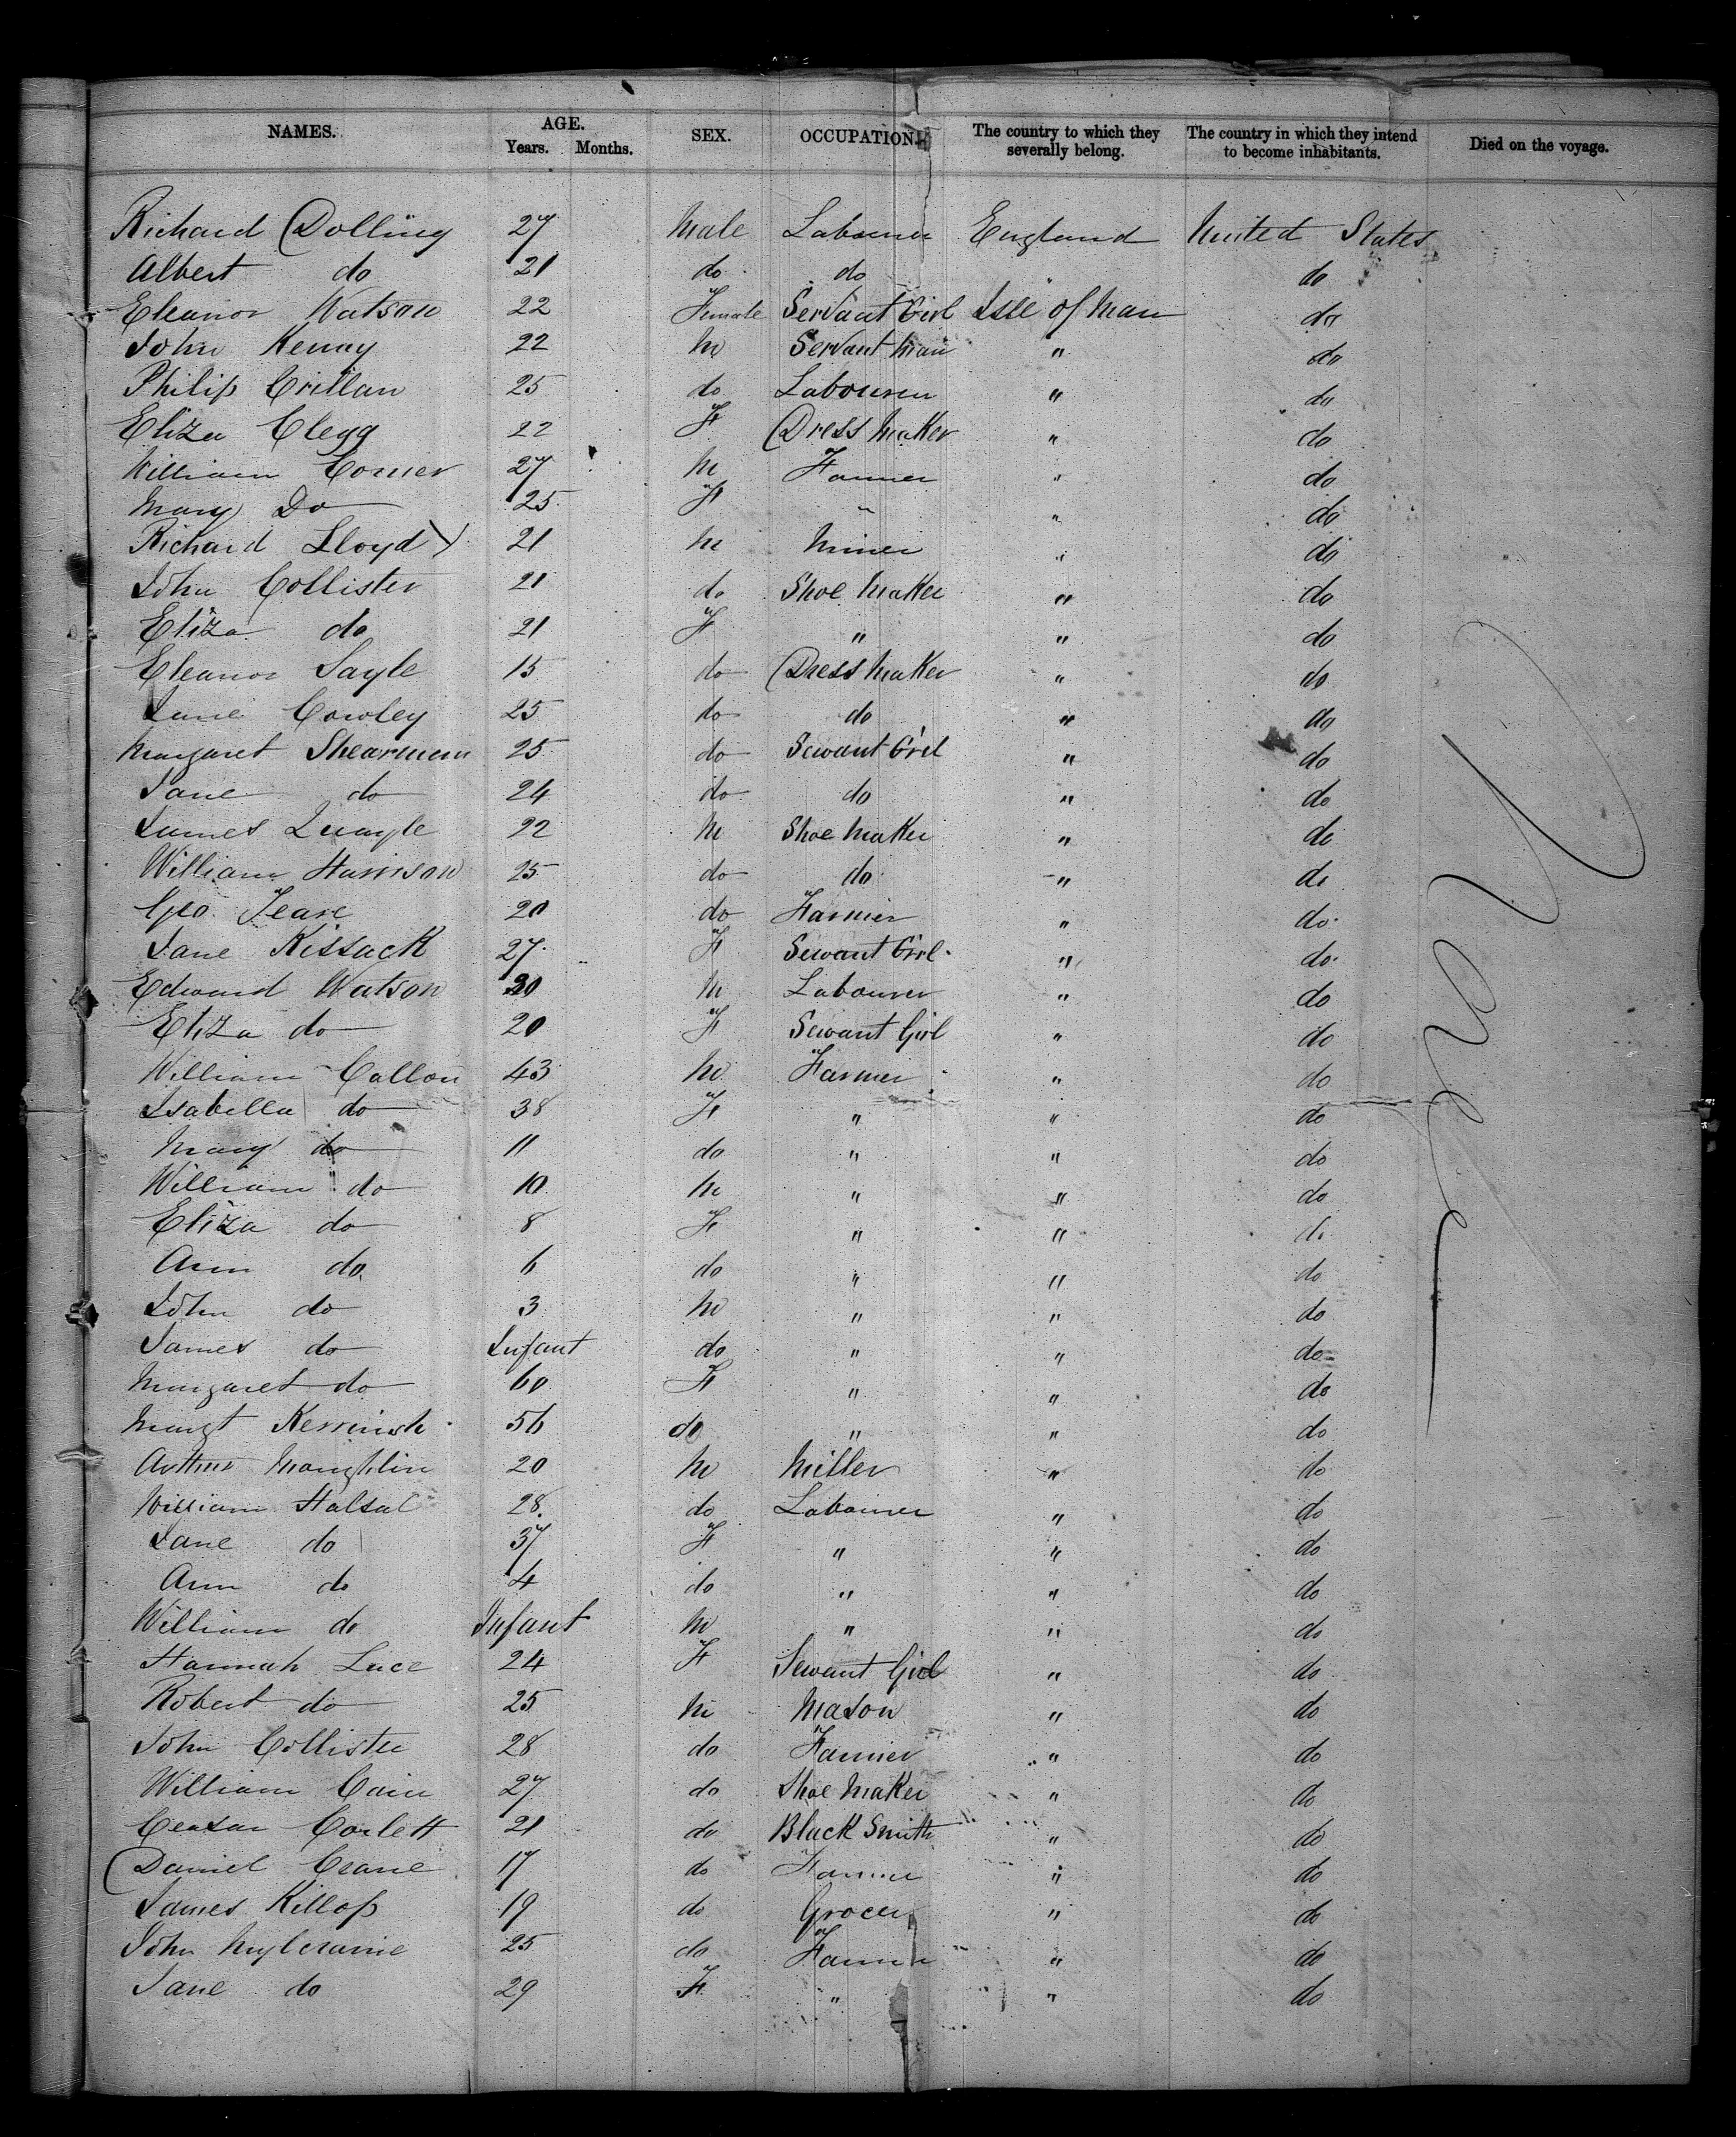 NAMES. AGE. Years. Months. SEX. OCCUPATION. The country to which they severally belong. The country in which they intend to become inhabitants. Died on the voyage.
Richard Dolling 27 Male Labourer England United States
Albert do 21 do do do
Eleanor Watson 22 Female Servant Girl Isle of Man do
John Kenny 22 M Servant Man " do
Philip Crillan 25 do Labourer " do
Eliza Clegg 22 F Dress Maker " do
William Corner 27 M Farmer " do
Mary Do 25 F " " do
Richard Lloyd 21 M Miner " do
John Collister 21 do Shoe Maker " do
Eliza do 21 F " " do
Eleanor Sayle 15 do Dress Maker " do
Jane Cowley 25 do do " do
Margaret Shearmem 25 do Servant Girl " do
Jane do 24 do do " do
James Quayle 22 M Shoe Maker " do
William Harrison 25 do do " do
Geo. Teare 20 do Farmer " do
Jane Kissack 27 F Servant Girl " do
Edward Watson 20 M Labourer " do
Eliza do 20 F Servant Girl " do
William Callon 43 M Farmer " do
Isabella do 38 F " " do
Mary do 11 do " " do
William do 10 M " " do
Eliza do 8 F " " do
Ann do 6 do " " do
John do 3 M " " do
James do Infant do " " do
Margaret do 60 F " " do
Margt Kerruish 56 do " " do
Arthur Maughlin 20 M Miller " do
William Halsal 28 do Labourer " do
Jane do 37 F " " do
Ann do 4 do " " do
William do Infant M " " do
Hannah Luce 24 F Servant Girl " do
Robert do 25 M Mason " do
John Collister 28 do Farmer " do
William Cain 27 do Shoe Maker " do
Ceasar Corlett 21 do Black Smith " do
Daniel Crane 17 do Farmer " do
James Killop 19 do Grocer " do
John Mylcraine 25 do Farmer " do
Jane do 29 F " " do
None